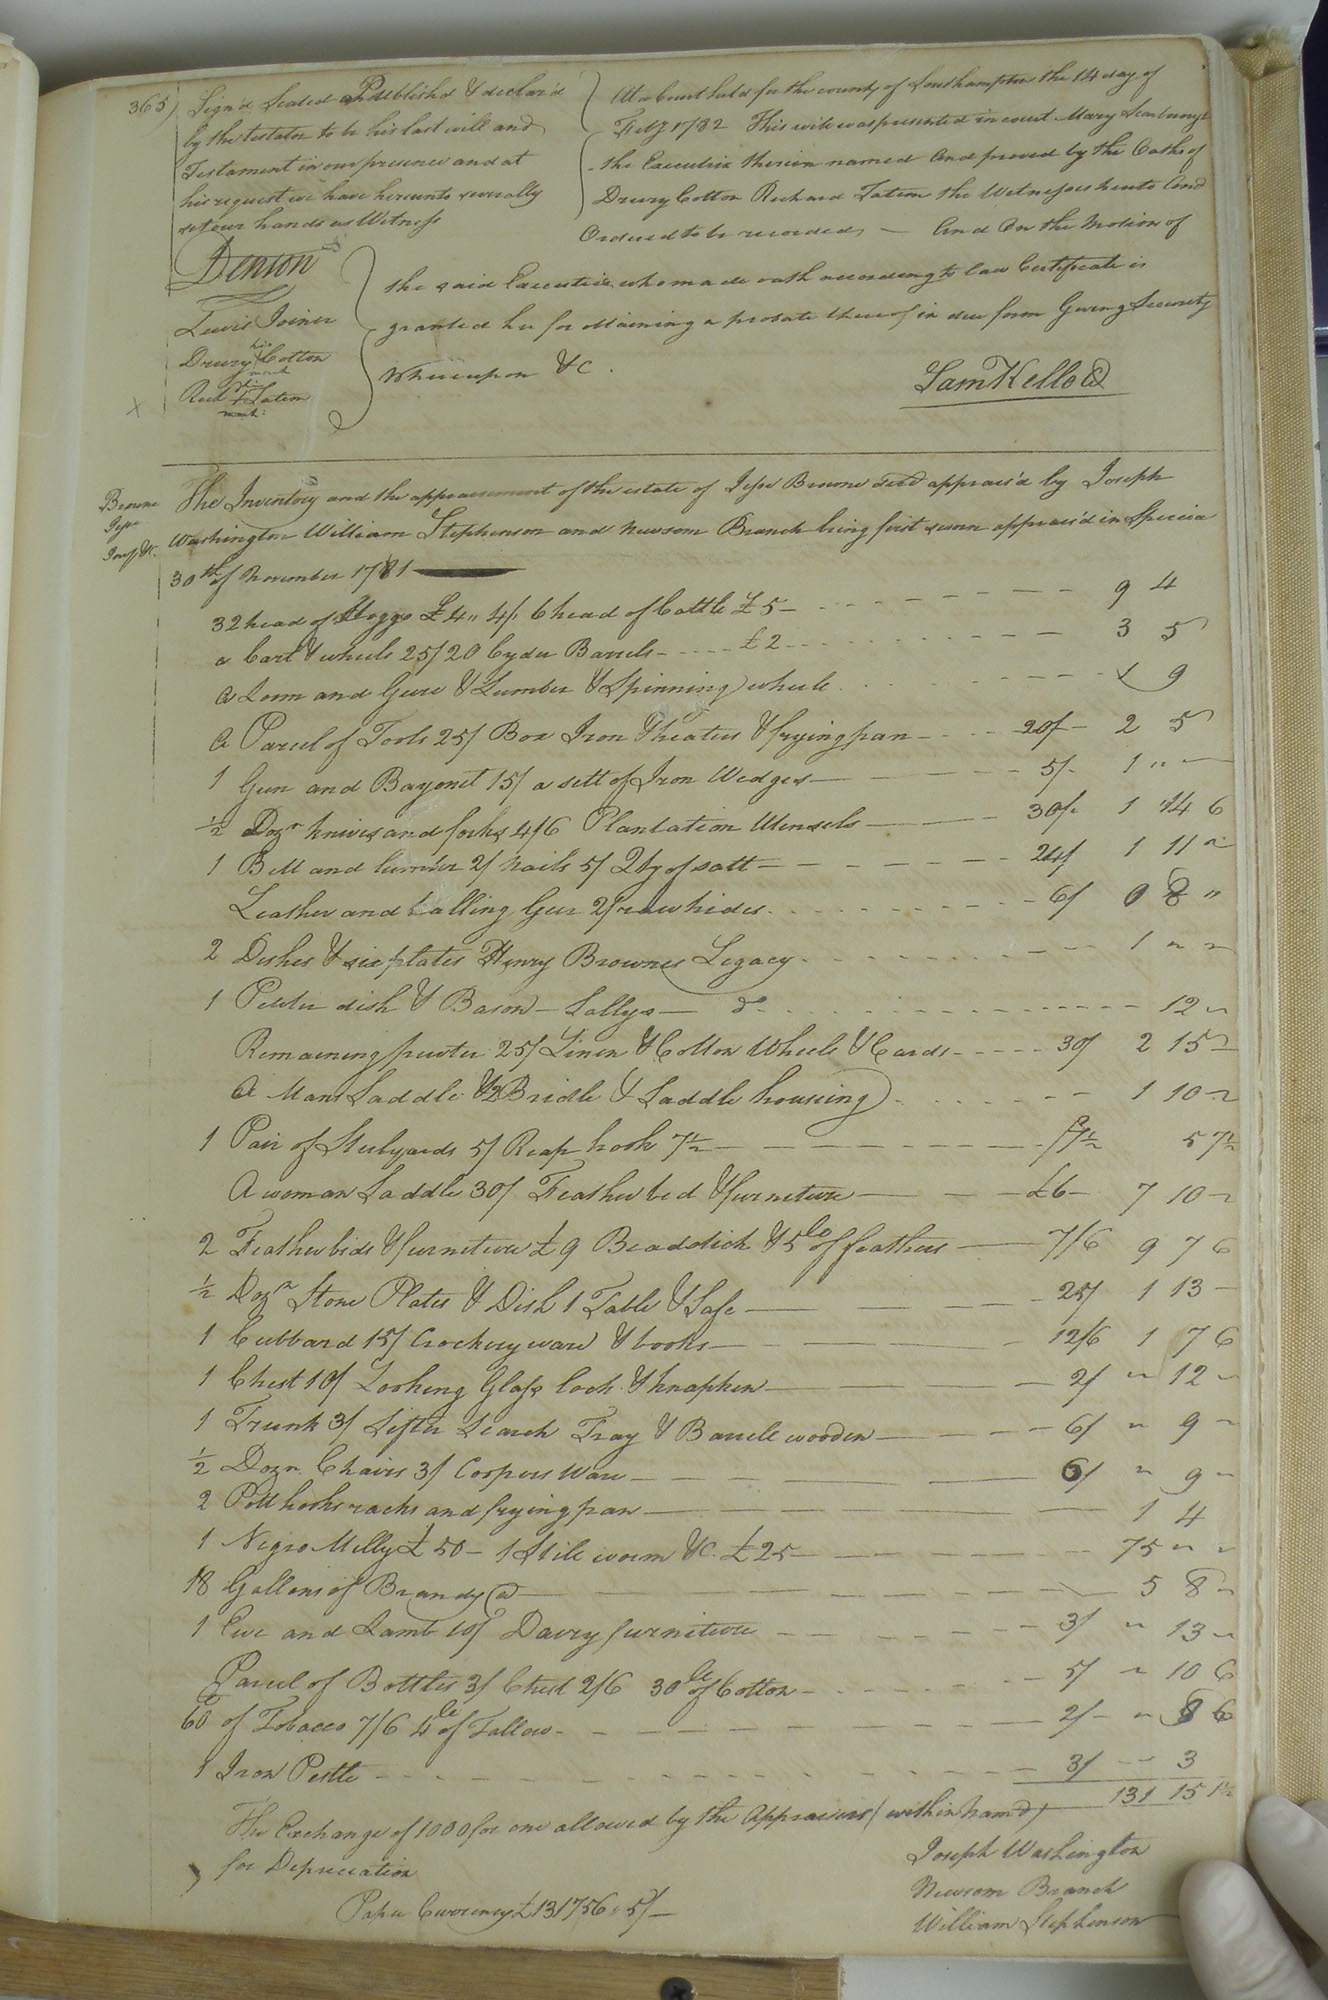 365)
Sign'd Sealed Published & declar'd
by the testator to be his last will and
Testament in our presence and at
his request we have hereunto severally
set our hands as Witness
Denson
Lewis Joiner
his
Drury Cotton
mark
his
Rich + Tatem
mark
At a Court held for the county of Southampton the 14 day of
Feby 1782 This will was presented in court Mary
the Executrix therein named And proved by the Oaths of
Drury Cotton Richard Tatem the Witnesses hereto And
Ordered to be recorded, — And On the Motion of
the said Executrix who made oath according to law Certificate is
granted her for obtaining a probate thereof in due form Giving Security
Whereupon &c.
Sam Kello
X
Browne
Jesse
The Inventory and the appraisement of the estate of Jesse Browne decd apprais'd by Joseph
Washington William Stephenson and Newsom Branch being first sworn apprais'd in Specia
30th of November 1781
32 head of Hoggs £4 " 4/. 6 head of Cattle £5 - 9 4
a Cart & wheels 25/ 20 Cyder Barrels - £2 - 3 5
A Loom and Geer & Lumber & Spinning wheele 9
A Parcel of Tools 25/ Box Iron & heaters & frying pan - 20/- 2 5
1 Gun and Bayonet 15/ a sett of Iron Wedges - 5/- 1 " -
½ Dozn knives and forks 4/6 Plantation Utensels - 30/. 1 14 6
1 Bell and lumber 2/ Nails 5/ Qty of salt - 24/ 1 11 ~
Leather and Geer 2/ raw hides - 6/ 0 8 "
2 Dishes & six plates Henry Brownes Legacy - 1 ~ ~
1 Pewter dish & Bason - Sallys - do - 12 ~
Remaining pewter 25/ Linen & Cotton Wheele & Cards - 30/ 2 15 ~
A Mans Saddle & 2 Bridle & Saddle housing - 1 10 ~
1 Pair of Steelyards 5/ Reap hook 7½ - /7½ 5 7½
A woman Saddle 30/ Feather bed & furneture - £6 - 7 10 ~
2 Feather beds & furneture £9 Beadstick & 5 lb of feathers - 7/6 9 7 6
½ Dozn Stone Plates & Dish 1 Table & Safe - 25/ 1 13 -
1 Cubbard 15/ Crockery ware & books - 12/6 1 7 6
1 Chest 10/ Looking Glass lock & knapken - 2/ ~ 12 ~
1 Trunk 3/ Sifter Search Tray & Barrele wooden - 6/ ~ 9 ~
½ Dozn Chairs 3/ Coopers Ware - 6/ ~ 9 ~
2 Pott hooks racks and frying pan - 1 4
1 Negro Milly £50 - 1 Stile worm &c. £25 - 75 ~ ~
18 Gallons of Brandy @ - 5 8 ~
1 Ewe and Lamb 10/ Dairy furneture - 3/ ~ 13 ~
Parcel of Bottles 3/ Chest 2/6 30 lb of Cotton - 5/ ~ 10 6
60 of Tobacco 7/6 4 lb of Tallow - 2/- ~ 8 6
1 Iron Pestle - 3/ - 3
131 15 1½
The Exchange of 1000 for one allowed by the Appraisers (within nam'd)
for Depreciation
Paper Currency £131756 " 5/-
Joseph Washington
Newsom Branch
William Stephenson